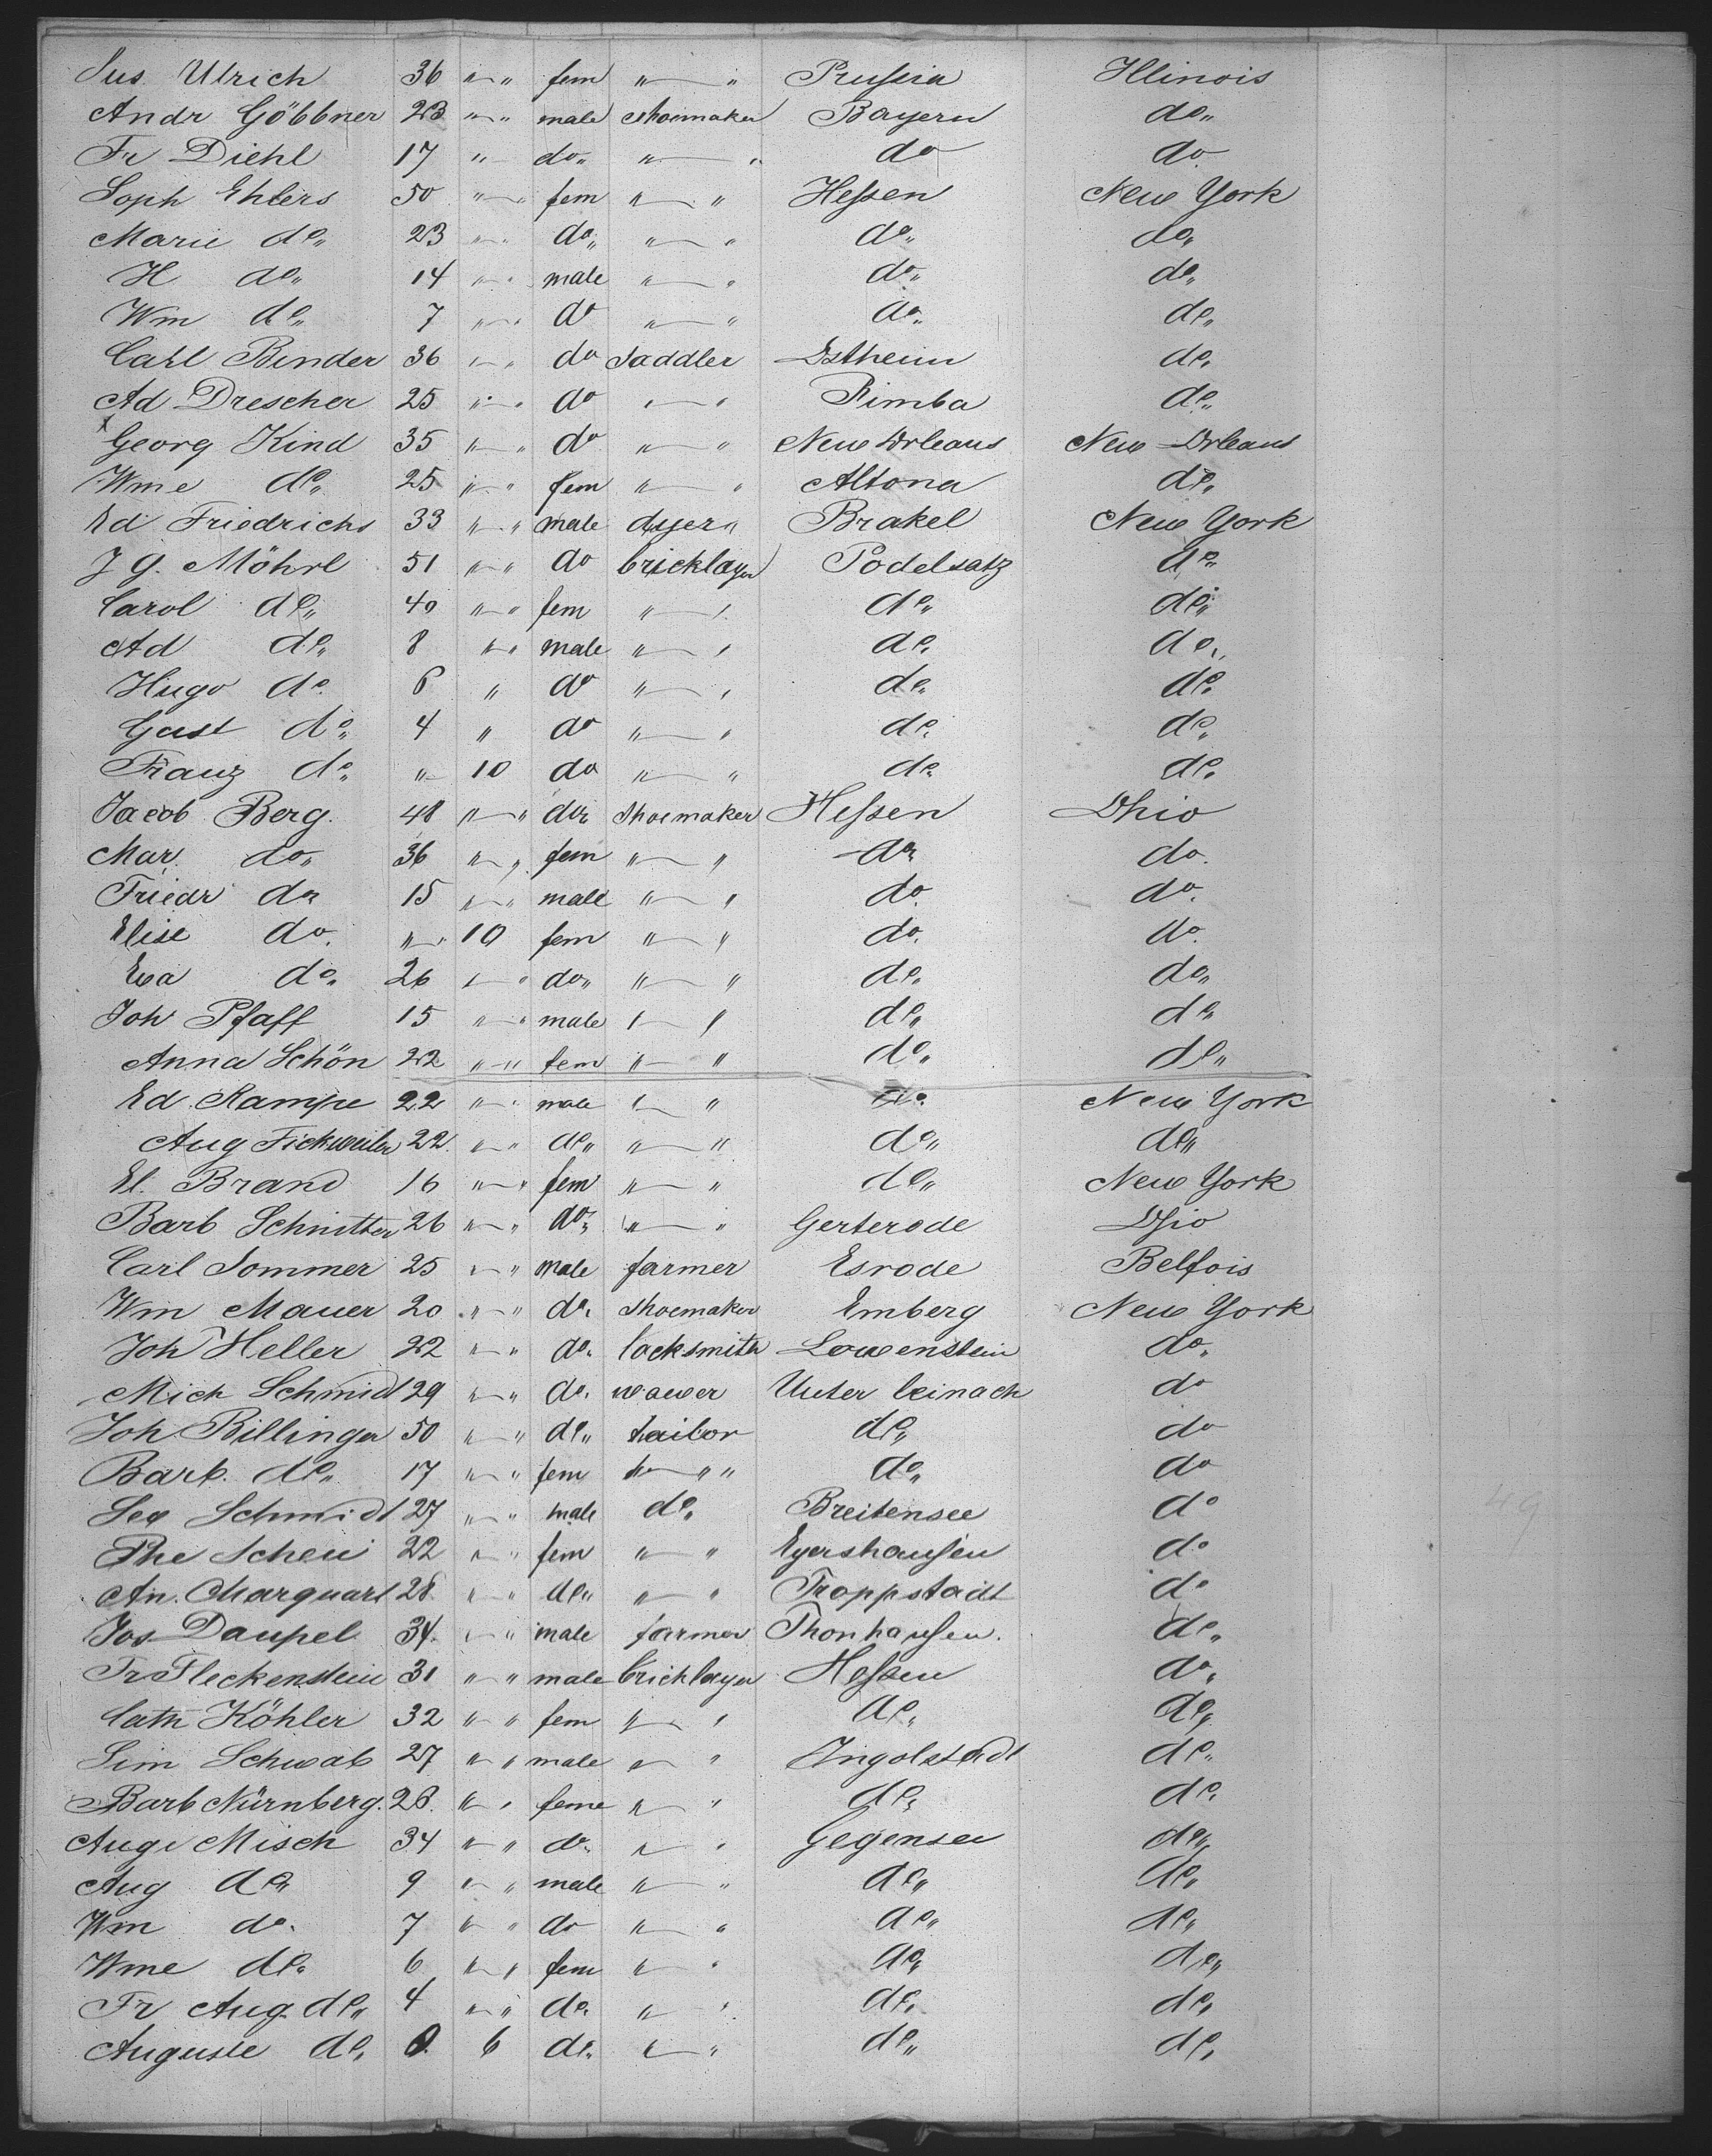 Sus. Ulrich 36 " " fem " " Prussia Illinois
Andr Göbbner 23 " " male shoemaker Bayern do"
Fr Diehl 17 " do" " " do do.
Soph Ehlers 50 " " fem " " Hessen New York
Marie do" 23 " " do" " " do" do"
H do" 14 " " male " " do" do"
Wm do" 7 " " do " " do" do"
Carl Binder 36 " " do Saddler Ostheim do"
Ad Drescher 25 " " do " " Rimba do"
x Georg Kind 35 " " do " " New Orleans New Orleans
Wme do" 25 " " fem " " Altona do"
Ed Friedrichs 33 " " male dyer " Brakel New York
J G. Möhrl 51 " " do bricklayer Podelsatz do"
Carol do" 40 " " fem " " do" do"
Ad do" 8 " " male " " do" do"
Hugo do. 6 " do " " do" do"
Gust do" 4 " do " " do" do"
Franz do" " 10 do " " do" do"
Jacob Berg. 48 " " do" Shoemaker Hessen Ohio
Mar. do" 36 " " fem " " do" do.
Friedr do" 15 " " male " " do. do.
Elise do. " 10 fem " " do. do.
Eva do" 26 " " do" " " do" do"
Joh Pfaff 15 " " male " " do" do"
Anna Schön 22 " " fem " " do" do"
Ed. Kampe 22 " " male " " do. New York
Aug Fickweiler 22. " " do" " " do" do"
El. Brand 16 " " fem " " do" New York
Barb Schnitter 26 " " do" " " Gerterode Ohio
Carl Sommer 25 " " male farmer Esrode Belfois
Wm Mauer 20 " " do" Shoemaker Emberg New York
Joh Heller 22 " " do" locksmith Lowenstein do"
Mich Schmidt 29 " " do" waever Unter leinach do
Joh Billinger 50 " " do" tailor do" do
Barb. do" 17 " " fem " " do" do
Seb Schmidt 27 " " male do" Breitensee do
Phe Scheu 22 " " fem " " Eyershausen do
An. Marquart 28. " " do" " " Troppstadt do
Jos Daupel 34. " " male farmer Thonhausen. do"
Fr Fleckenstein 31 " " male bricklayer Hessen do"
Cath Köhler 32 " " fem " " do" do"
Sim Schwab 27 " " male " " Ingolstadt do"
Barb Nürnberg. 28. " " feme " " do" do"
Auge Misch 34 " " do" " " Gegensee do"
Aug do" 9 " " male " " do" do"
Wm do. 7 " " do " " do" do"
Wme do" 6 " " fem " " do" do"
Fr Aug. do" 4 " " do" " " do" do"
Auguste do" 0. 6 do" " " do" do"
49